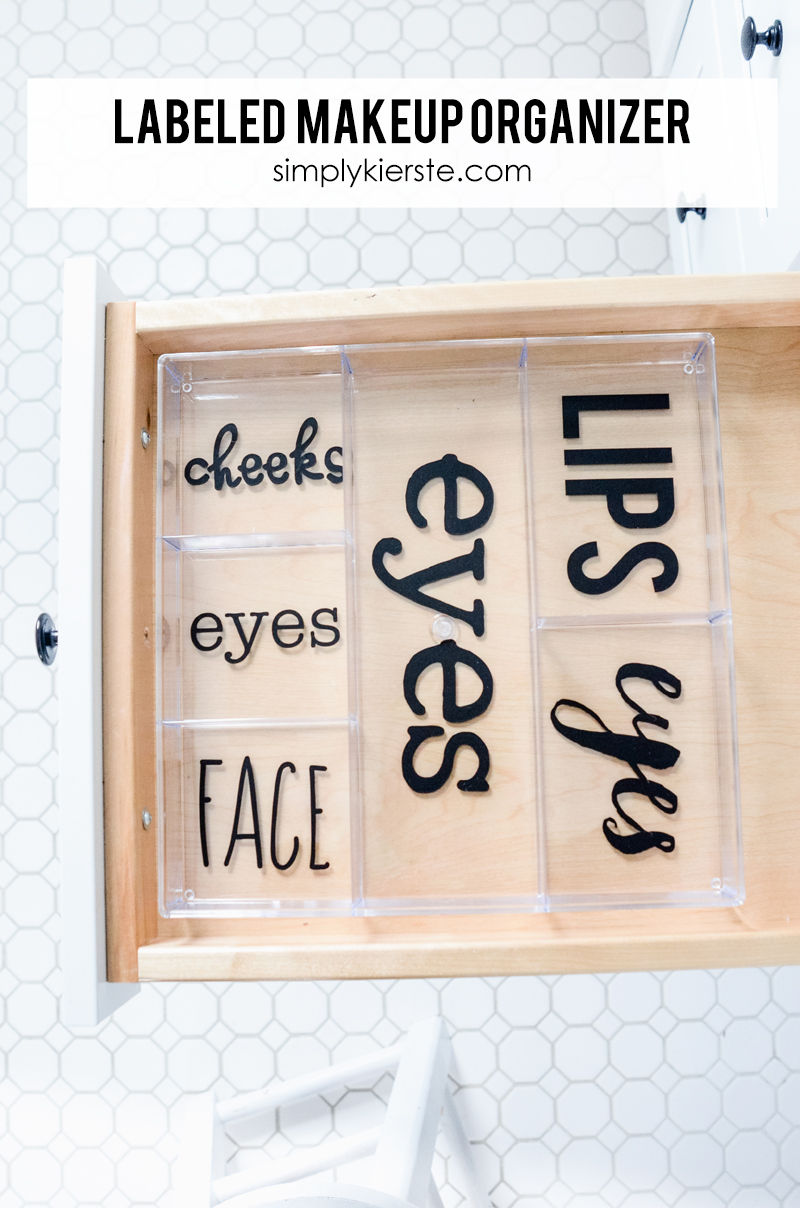 LABELED MAKEUP ORGANIZER
simplykierste.com
cheeks
eyes
FACE
eyes
LIPS
eyes